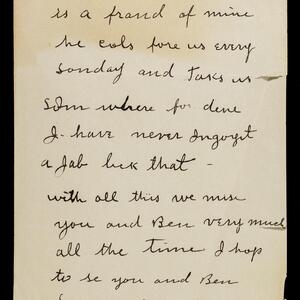 is a frand of mine
he cols fore us every
sonday and taks us
som where for dene
I have never Ingoyt
a Jab lick that -
with all this we miss
you and Ben very much
all the time I hop
to se you and Ben